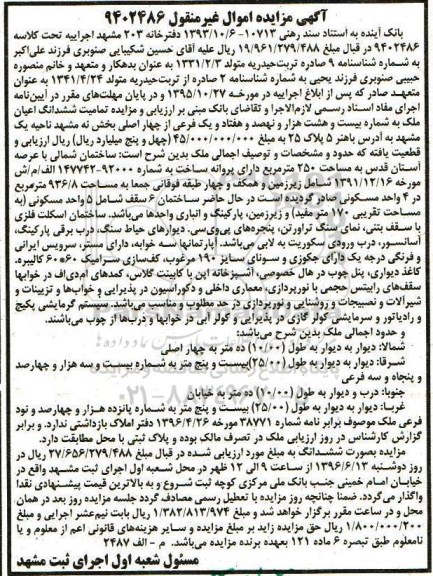 آگهی مزایده اموال غیرمنقول ۹۴۰۲۴۸۶
بانک آینده به استناد سند رهنی ۱۰۷۱۳-۱۳۹۳/۱۰/۶ دفترخانه ۲۰۳ مشهد اجراییه تحت کلاسه
۹۴۰۲۴۸۶ در قبال مبلغ ۱۹/۹۶۱/۲۷۹/۴۸۸ ریال علیه آقای حسین شکیبایی صنوبری فرزند علی‌اکبر
به شماره شناسنامه ۹ صادره تربت‌حیدریه متولد ۱۳۳۱/۲/۳ به عنوان بدهکار و متعهد و خانم منصوره
حبیبی صنوبری فرزند یحیی به شماره شناسنامه ۲ صادره از تربت‌حیدریه متولد ۱۳۴۱/۴/۲۴ به عنوان
متعهد صادر که پس از ابلاغ اجراییه در مورخه ۱۳۹۵/۱۰/۲۷ و در پایان مهلت‌های مقرر در آیین‌نامه
اجرای مفاد اسناد رسمی لازم‌الاجرا و تقاضای بانک مبنی بر ارزیابی و مزایده تمامیت ششدانگ اعیان
ملک به شماره بیست و هشت هزار و نهصد و هفتاد و یک فرعی از چهار اصلی بخش نه مشهد ناحیه یک
مشهد به آدرس باهنر ۵ پلاک ۲۵ به مبلغ ۴۵/۰۰۰/۰۰۰/۰۰۰ (چهل و پنج میلیارد ریال) ریال ارزیابی و
قطعیت یافته که حدود و مشخصات و توصیف اجمالی ملک بدین شرح است: ساختمان شمالی با عرصه
آستان قدس به مساحت ۲۵۰ مترمربع دارای پروانه ساخت به شماره ۹۲۰۰۰-۱۴۷۷۴۲
مورخه ۱۳۹۱/۱۲/۱۶ شامل زیرزمین و همکف و چهار طبقه فوقانی جمعا به مساحت ۹۳۶/۸ مترمربع
در ۴ واحد مسکونی صادر گردیده است در حال حاضر ساختمان ۶ سقف شامل ۵ واحد مسکونی (به
مساحت تقریبی ۱۷۰ متر مفید) و زیرزمین، پارکینگ و انباری واحدها می‌باشد. ساختمان اسکلت فلزی
با سقف بتنی، نمای سنگ تراورتن، پنجره‌های پی‌وی‌سی، دیوارهای حیاط سنگ، درب برقی پارکینگ،
آسانسور، درب ورودی سکوریت به لابی می‌باشد. آپارتمانها سه خوابه، دارای مستر، سرویس ایرانی
و فرنگی درجه یک دارای جکوزی و سونای سایز ۱۹۰ مرغوب، کف‌سازی سرامیک ۶۰×۶۰ کالیبره،
کاغذ دیواری، پنل چوب در هال خصوصی، آشپزخانه اپن با کابینت گلاس، کمدهای ام‌دی‌اف در خوابها
سقف‌های رابیتس حجمی با نورپردازی، معماری داخلی و دکوراسیون در پذیرایی و خواب‌ها و تزیینات و
شیرآلات و نصبیجات و روشنایی و نورپردازی در حد مطلوب و مناسب می‌باشد. سیستم گرمایشی پکیج
و رادیاتور و سرمایشی کولر گازی در پذیرایی و کولر آبی در خوابها و درب‌ها از چوب می‌باشند.
و حدود اجمالی ملک بدین شرح می‌باشد:
شمالا: دیوار به دیوار به طول (۱۰/۰۰) ده متر به چهار اصلی
شرقا: دیوار به دیوار به طول (۲۵/۰۰) بیست و پنج متر به شماره بیست و سه هزار و چهارصد
و پنجاه و سه فرعی
جنوبا: درب و دیوار به طول (۱۰/۰۰) ده متر به خیابان
غربا: دیوار به دیوار به طول (۲۵/۰۰) بیست و پنج متر به شماره پانزده هزار و چهارصد و نود
فرعی ملک موصوف برابر نامه شماره ۳۸۷۷۱ مورخه ۱۳۹۶/۴/۲۶ دفتر املاک بازداشتی ندارد. و برابر
گزارش کارشناس در روز ارزیابی ملک در تصرف مالک بوده و پلاک ثبتی با محل مطابقت دارد.
مزایده بصورت ششدانگ به مبلغ مورد ارزیابی شده در قبال مبلغ ۲۷/۶۵۶/۲۷۹/۴۸۸ ریال در
روز دوشنبه ۱۳۹۶/۶/۱۳ از ساعت ۹ الی ۱۲ ظهر در محل شعبه اول اجرای ثبت مشهد واقع در
خیابان امام خمینی جنب بانک ملی مرکزی کوچه ثبت شروع و به بالاترین قیمت پیشنهادی نقدا
واگذار می‌گردد. ضمنا چنانچه روز مزایده با تعطیل رسمی مصادف گردد جلسه مزایده روز بعد در همان
محل و در ساعت مقرر برگزار خواهد شد و مبلغ ۱/۳۸۲/۸۱۳/۹۷۴ ریال بابت نیم‌عشر اجرایی و مبلغ
۱/۸۰۰/۰۰۰/۲۰۰ ریال حق مزایده زاید بر مبلغ مزایده و سایر هزینه‌های قانونی اعم از معلوم و یا
نامعلوم طبق تبصره ۶ ماده ۱۲۱ بعهده برنده مزایده می‌باشد. م - الف ۲۴۸۷
مسئول شعبه اول اجرای ثبت مشهد